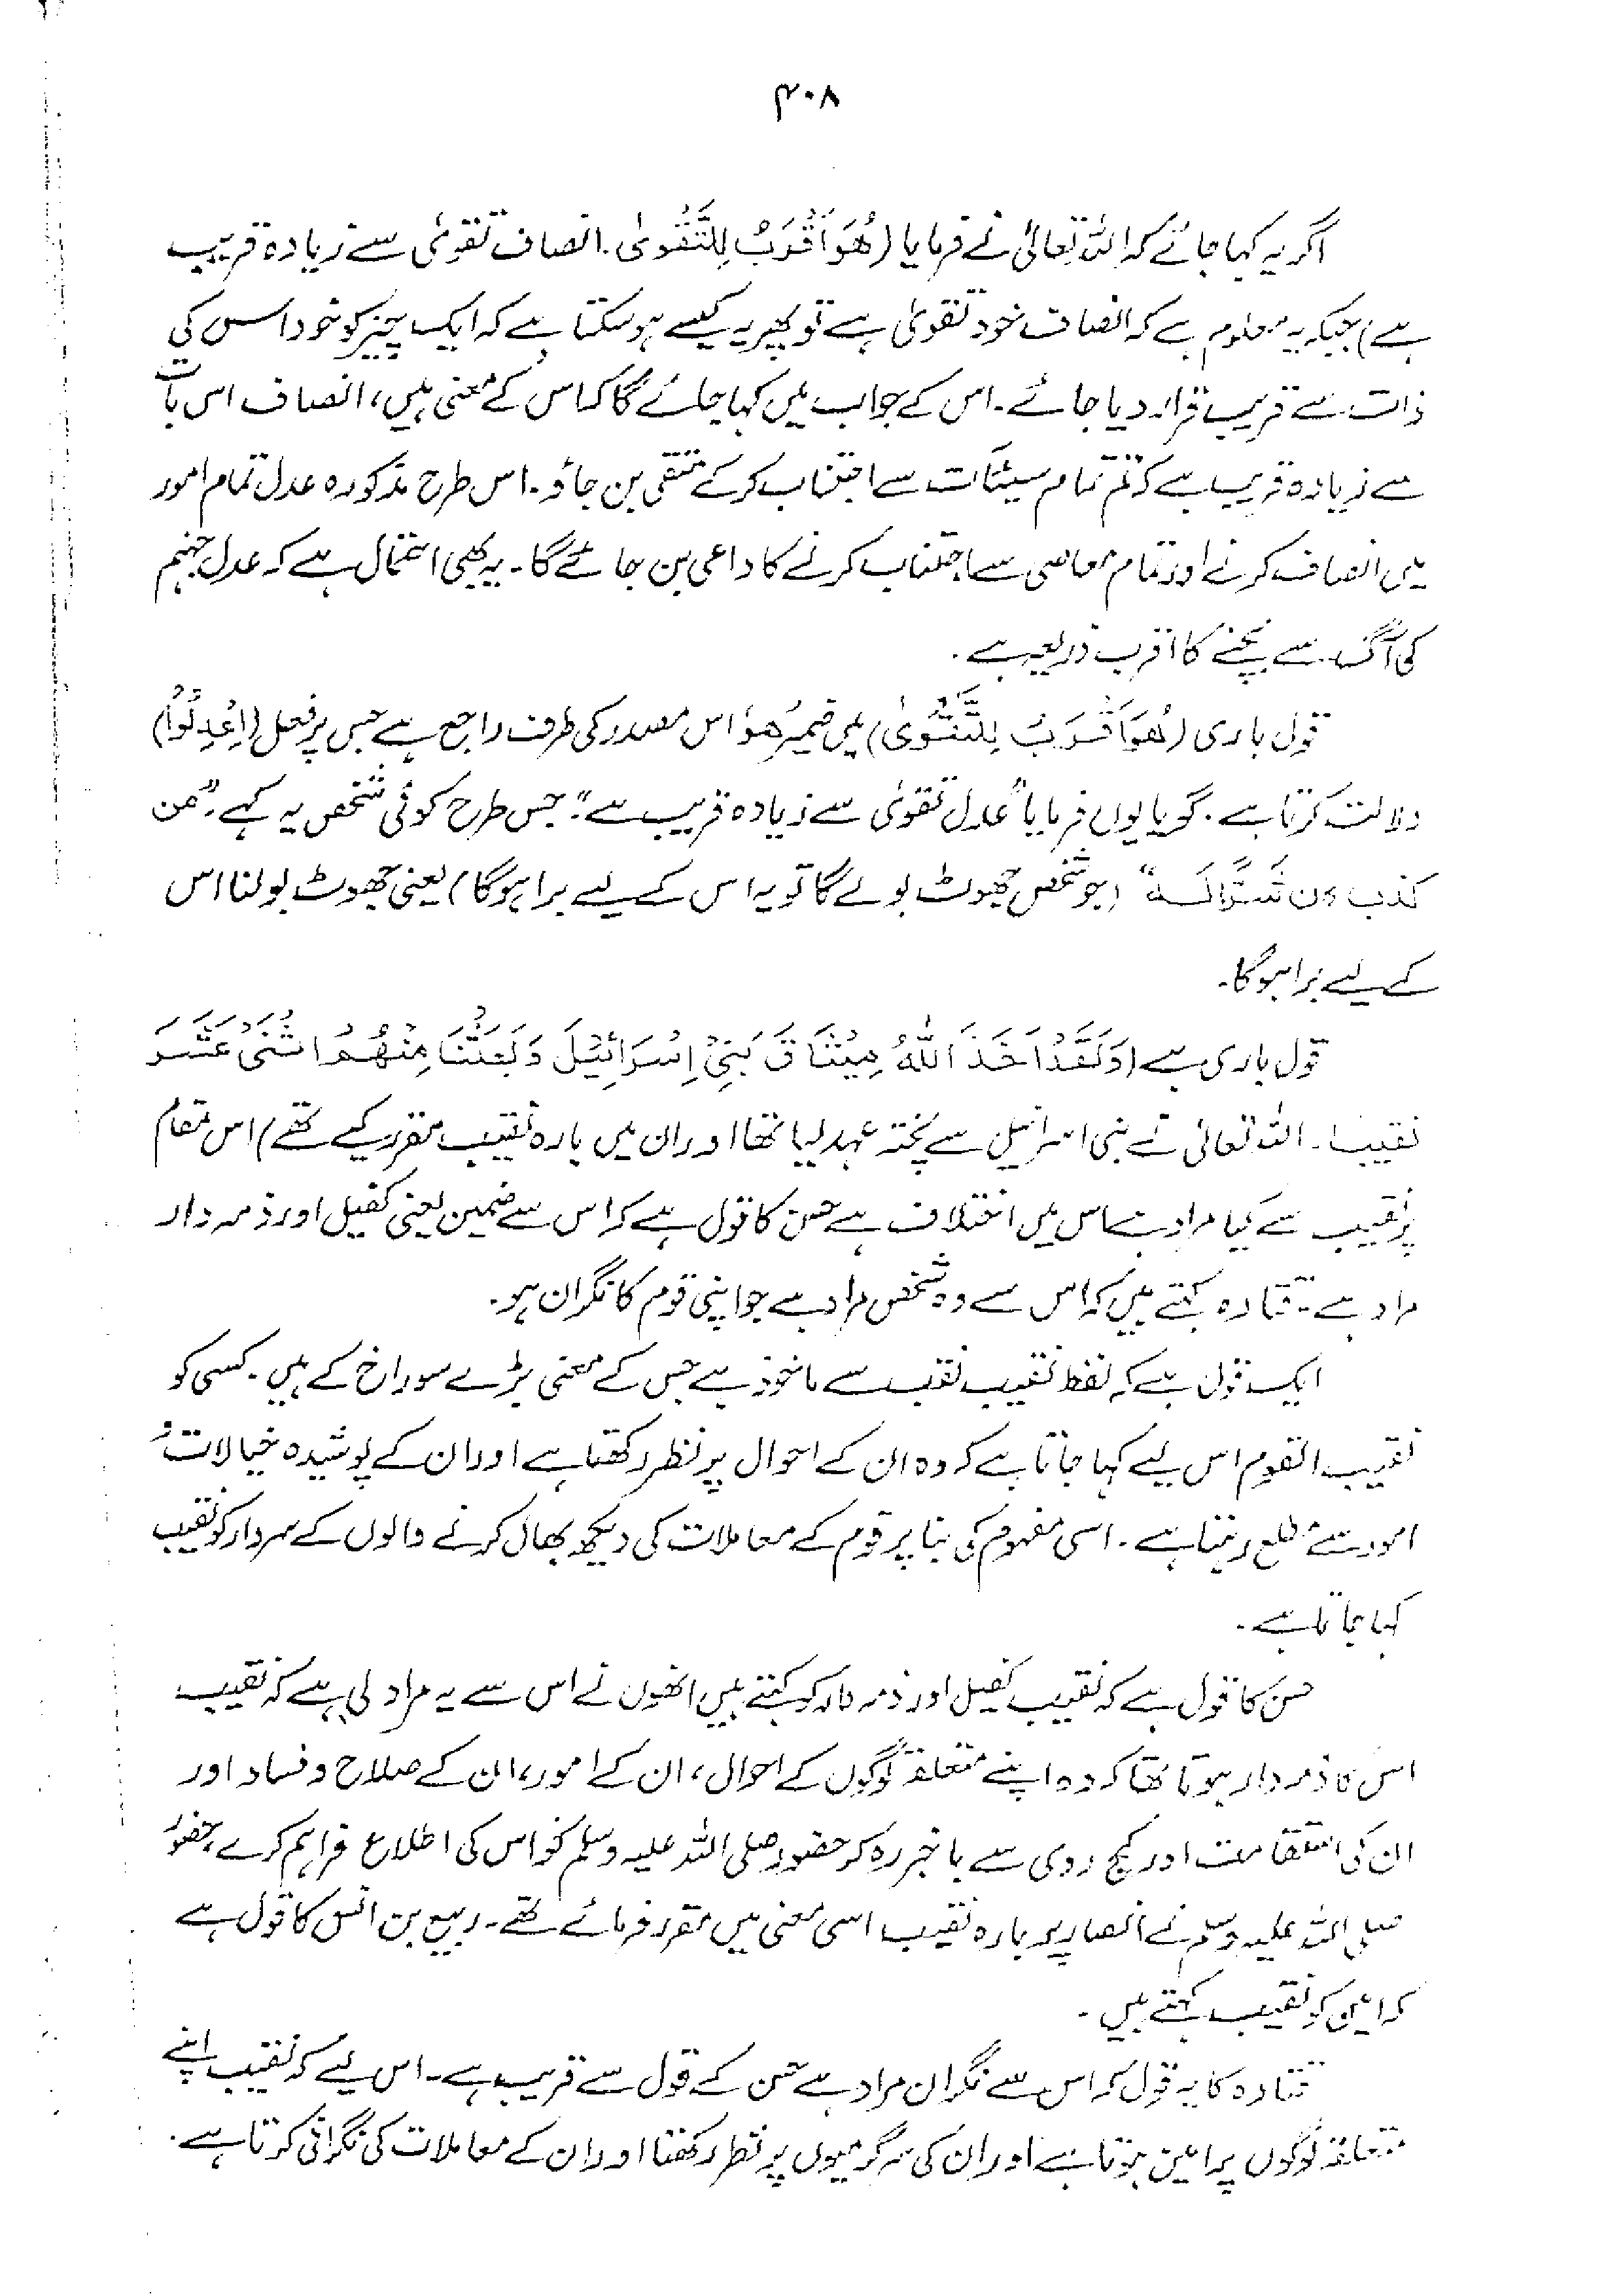 ۴۰۸
اگر یہ کہا جائے کہ اللہ تعالیٰ نے فرمایا (هُوَ اَقْرَبُ لِلتَّقْوىٰ۔ انصاف تقویٰ سے زیادہ قریب
ہے) جبکہ یہ معلوم ہے کہ انصاف خود تقویٰ ہے تو پھر یہ کیسے ہو سکتا ہے کہ ایک چیز کو خود اس کی
ذات سے قریب قرار دیا جائے۔ اس کے جواب میں کہا جائے گا کہ اس کے معنی ہیں، انصاف اس بات
سے زیادہ قریب ہے کہ تم تمام سیئات سے اجتناب کر کے متقی بن جاؤ۔ اس طرح مذکورہ عدل تمام امور
میں انصاف کرنے اور تمام معاصی سے اجتناب کرنے کا داعی بن جائے گا۔ یہ بھی احتمال ہے کہ عدل جہنم
کی آگ سے بچنے کا اقرب ذریعہ ہے۔
قول باری (هُوَ اَقْرَبُ لِلتَّقْوىٰ) میں ضمیر ھو اس مصدر کی طرف راجع ہے جس پر فعل (اِعْدِلُوْا)
دلالت کرتا ہے۔ گویا یوں فرمایا "عدل تقویٰ سے زیادہ قریب ہے"۔ جس طرح کوئی شخص یہ کہے "من
کذب کان شَرًّا لَہ" (جو شخص جھوٹ بولے گا تو یہ اس کے لیے برا ہوگا) یعنی جھوٹ بولنا اس
کے لیے برا ہوگا۔
قول باری ہے (وَلَقَدْ اَخَذَ اللّٰهُ مِيْثَاقَ بَنِيْ اِسْرَائِيْلَ وَبَعَثْنَا مِنْهُمُ اثْنَيْ عَشَرَ
نقیبا۔ اللہ تعالیٰ نے بنی اسرائیل سے پختہ عہد لیا تھا اور ان میں بارہ نقیب مقرر کیے تھے) اس مقام
پر نقیب سے کیا مراد ہے اس میں اختلاف ہے حسن کا قول ہے کہ اس سے ضمین یعنی کفیل اور ذمہ دار
مراد ہے۔ قتادہ کہتے ہیں کہ اس سے وہ شخص مراد ہے جو اپنی قوم کا نگران ہو۔
ایک قول ہے کہ لفظ نقیب نقب سے ماخوذ ہے جس کے معنی بڑے سوراخ کے ہیں۔ کسی کو
نقیب القوم اس لیے کہا جاتا ہے کہ وہ ان کے احوال پر نظر رکھتا ہے اور ان کے پوشیدہ خیالات و
امور سے مطلع رہتا ہے۔ اسی مفہوم کی بنا پر قوم کے معاملات کی دیکھ بھال کرنے والوں کے سردار کو نقیب
کہا جاتا ہے۔
حسن کا قول ہے کہ نقیب کفیل اور ذمہ دار کو کہتے ہیں انھوں نے اس سے یہ مراد لی ہے کہ نقیب
اس کا ذمہ دار ہوتا تھا کہ وہ اپنے متعلقہ لوگوں کے احوال، ان کے امور، ان کے صلاح و فساد اور
ان کی استقامت اور کج روی سے باخبر رہ کر حضور صلی اللہ علیہ وسلم کو اس کی اطلاع فراہم کرے، حضور
صلی اللہ علیہ وسلم نے انصار پر بارہ نقیب اسی معنی میں مقرر فرمائے تھے۔ ربیع بن انس کا قول ہے
کہ امین کو نقیب کہتے ہیں۔
قتادہ کا یہ قول کہ اس سے نگران مراد ہے حسن کے قول سے قریب ہے۔ اس لیے کہ نقیب اپنے
متعلقہ لوگوں پر امین ہوتا ہے اور ان کی سرگرمیوں پر نظر رکھتا اور ان کے معاملات کی نگرانی کرتا ہے۔